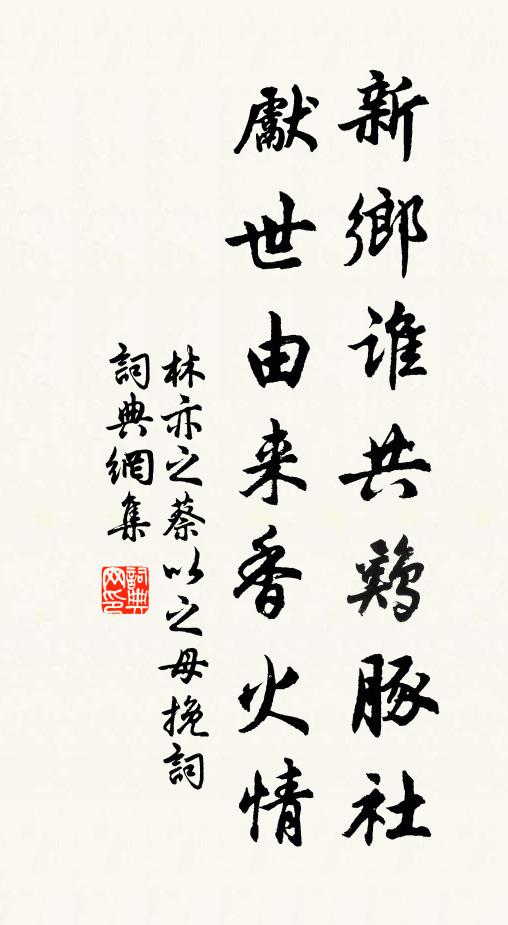 新鄉誰共鷄豚社
獻世由来香火情
林亦之蔡以之母挽詞
詞典網集
詞典网印